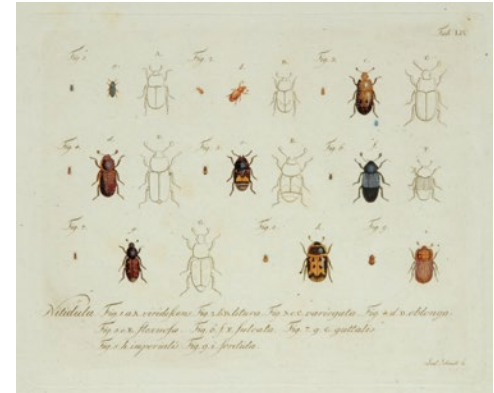 Fig. 1.
Fig. 2.
Fig. 3.
Fig. 4.
Fig. 5.
Fig. 6.
Fig. 7.
Fig. 8.
Fig. 9.
Nitidula Fig. 1. a. A. viridescens. Fig. 2. b. B. litura. Fig. 3. c. C. variegata. Fig. 4. d. D. oblonga.
Fig. 5. e. E. flexuosa. Fig. 6. f. F. sulcata. Fig. 7. g. G. guttalis
Fig. 8. h. imperialis. Fig. 9. i.